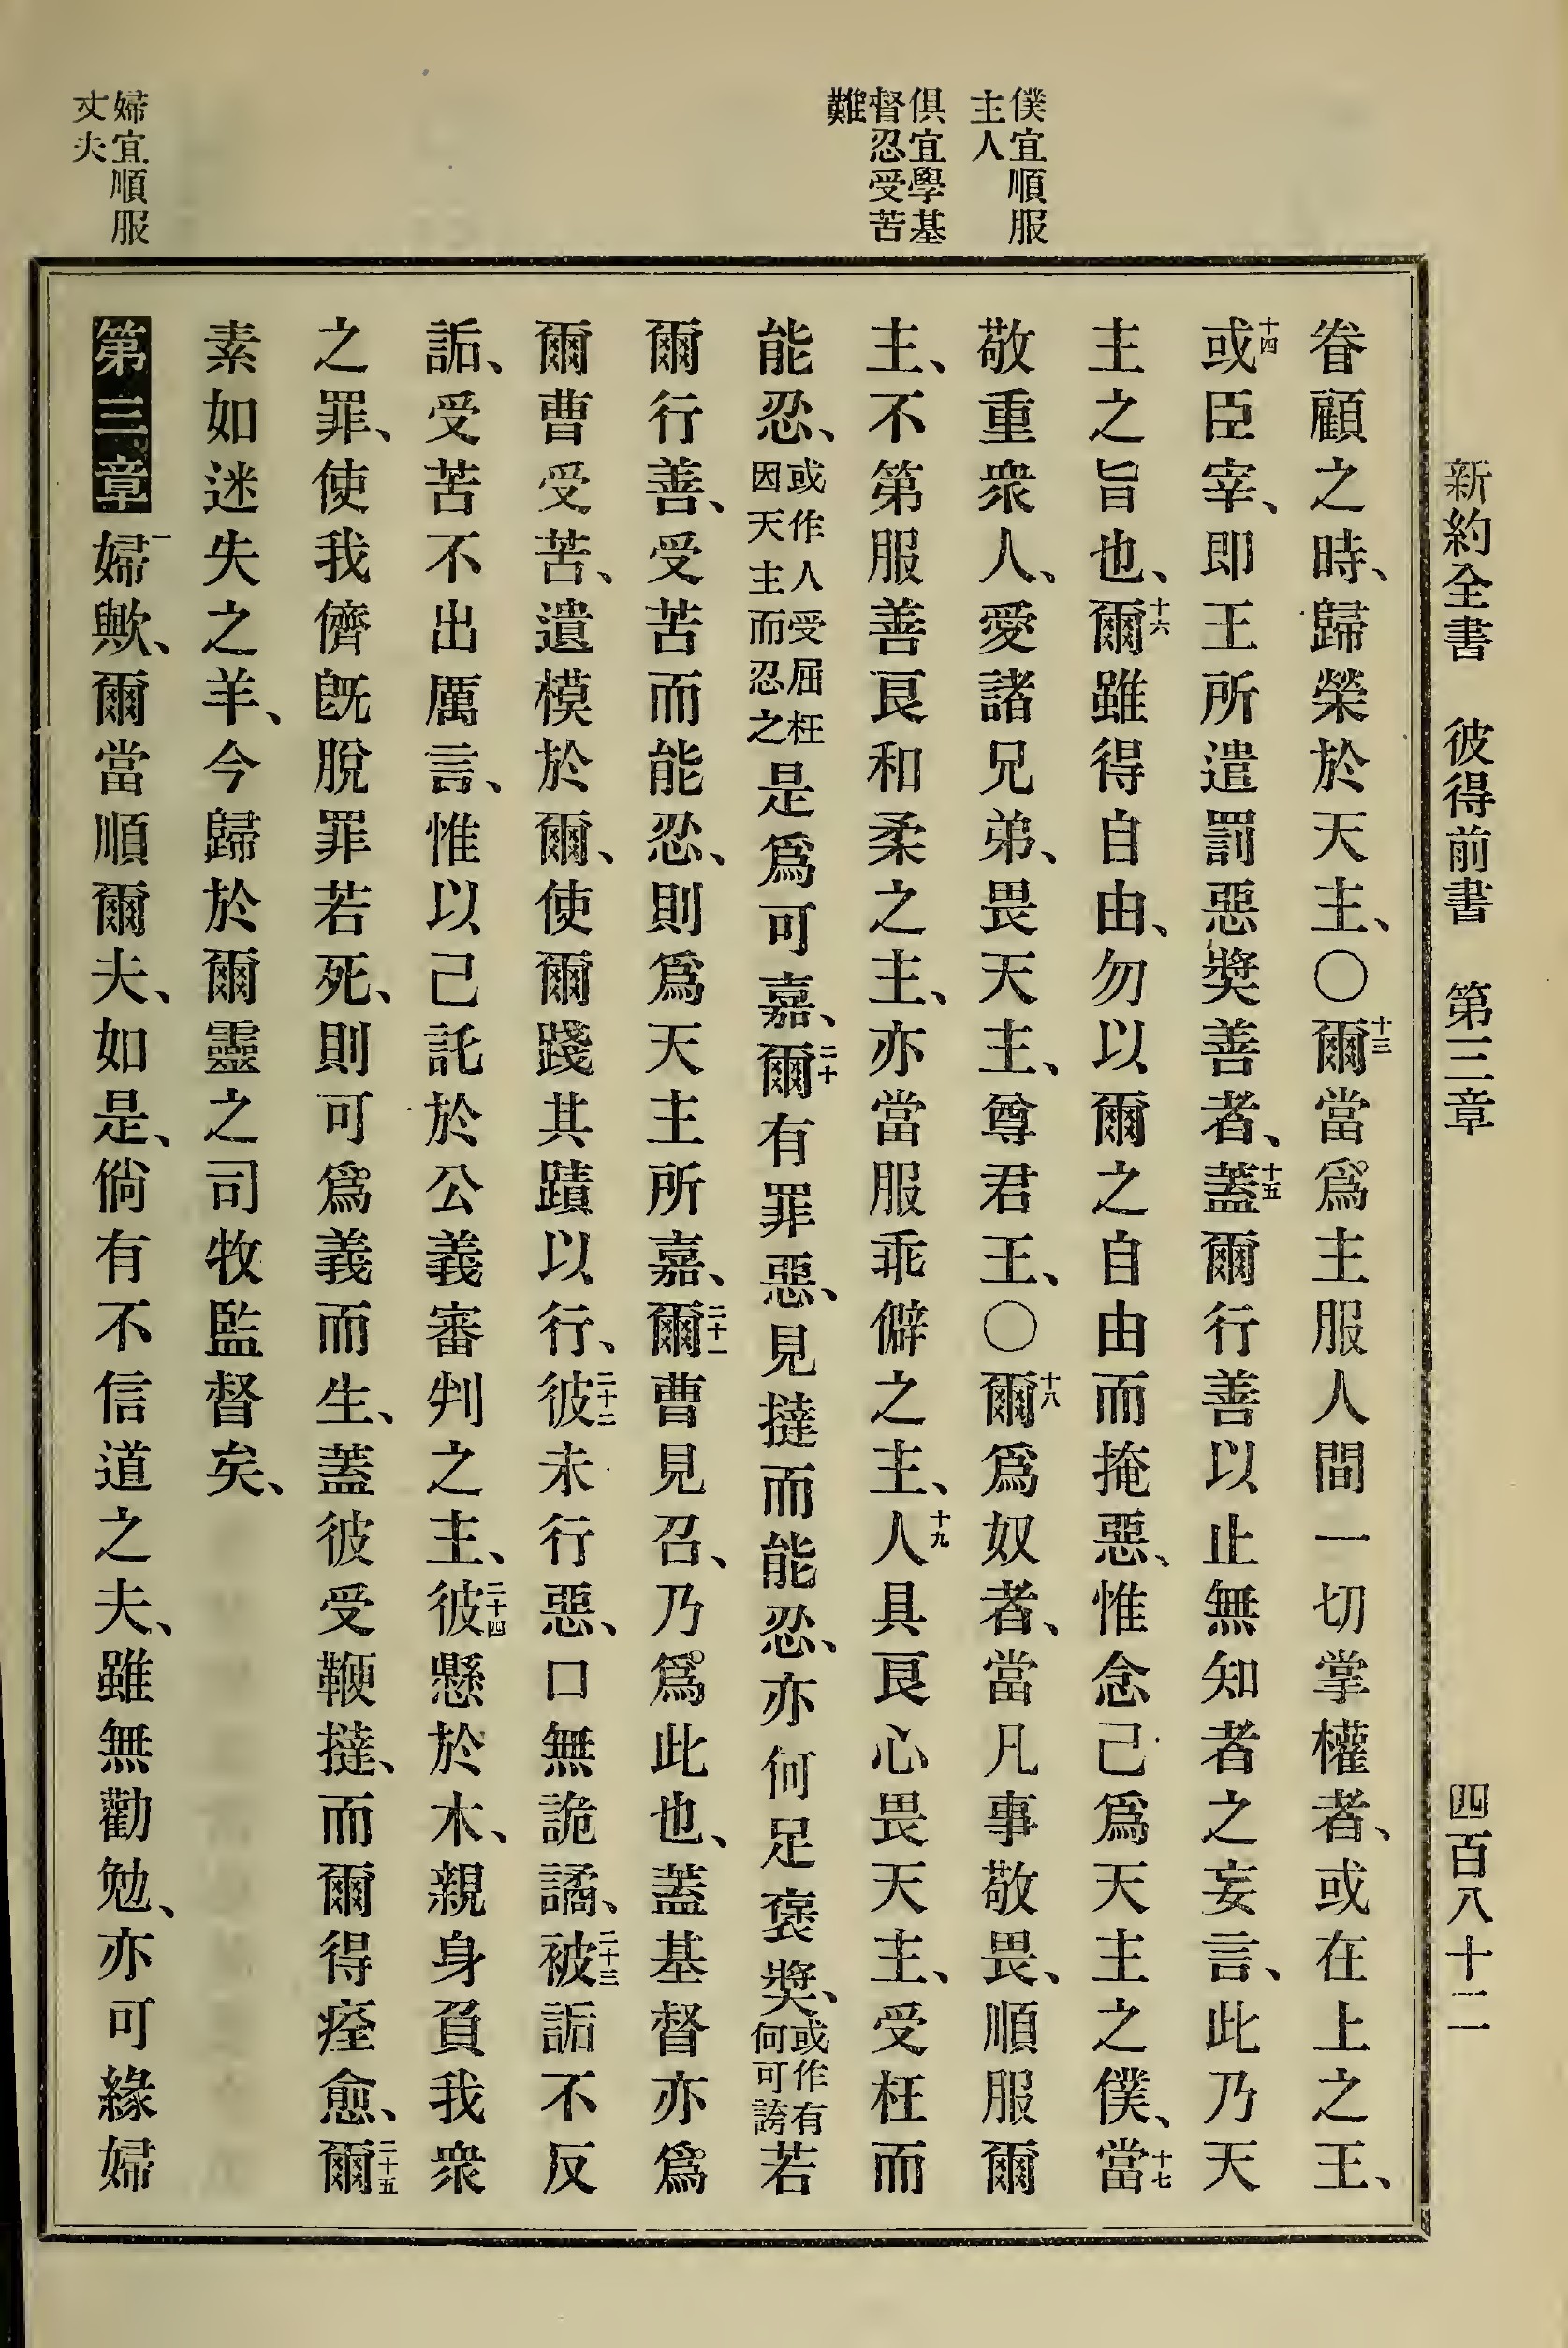 新約全書 彼得前書 第三章 四百八十二
僕宜順服
主人
俱宜學基
督忍受苦
難
婦宜順服
丈夫
眷顧之時、歸榮於天主、〇十三爾當爲主服人間一切掌權者、或在上之王、
十四或臣宰、即王所遣罰惡奬善者、十五蓋爾行善以止無知者之妄言、此乃天
主之旨也、十六爾雖得自由、勿以爾之自由而掩惡、惟念己爲天主之僕、十七當
敬重衆人、愛諸兄弟、畏天主、尊君王、〇十八爾爲奴者、當凡事敬畏、順服爾
主、不第服善良和柔之主、亦當服乖僻之主、十九人具良心畏天主、受枉而
能忍、或作人受屈枉因天主而忍之是爲可嘉、二十爾有罪惡、見撻而能忍、亦何足褒奬、或作有何可誇若
爾行善、受苦而能忍、則爲天主所嘉、二十一爾曹見召、乃爲此也、蓋基督亦爲
爾曹受苦、遺模於爾、使爾踐其蹟以行、二十二彼未行惡、口無詭譎、二十三被詬不反
詬、受苦不出厲言、惟以己託於公義審判之主、二十四彼懸於木、親身負我衆
之罪、使我儕旣脫罪若死、則可爲義而生、蓋彼受鞭撻、而爾得痊愈、二十五爾
素如迷失之羊、今歸於爾靈之司牧監督矣、
第三章 一婦歟、爾當順爾夫、如是、倘有不信道之夫、雖無勸勉、亦可緣婦